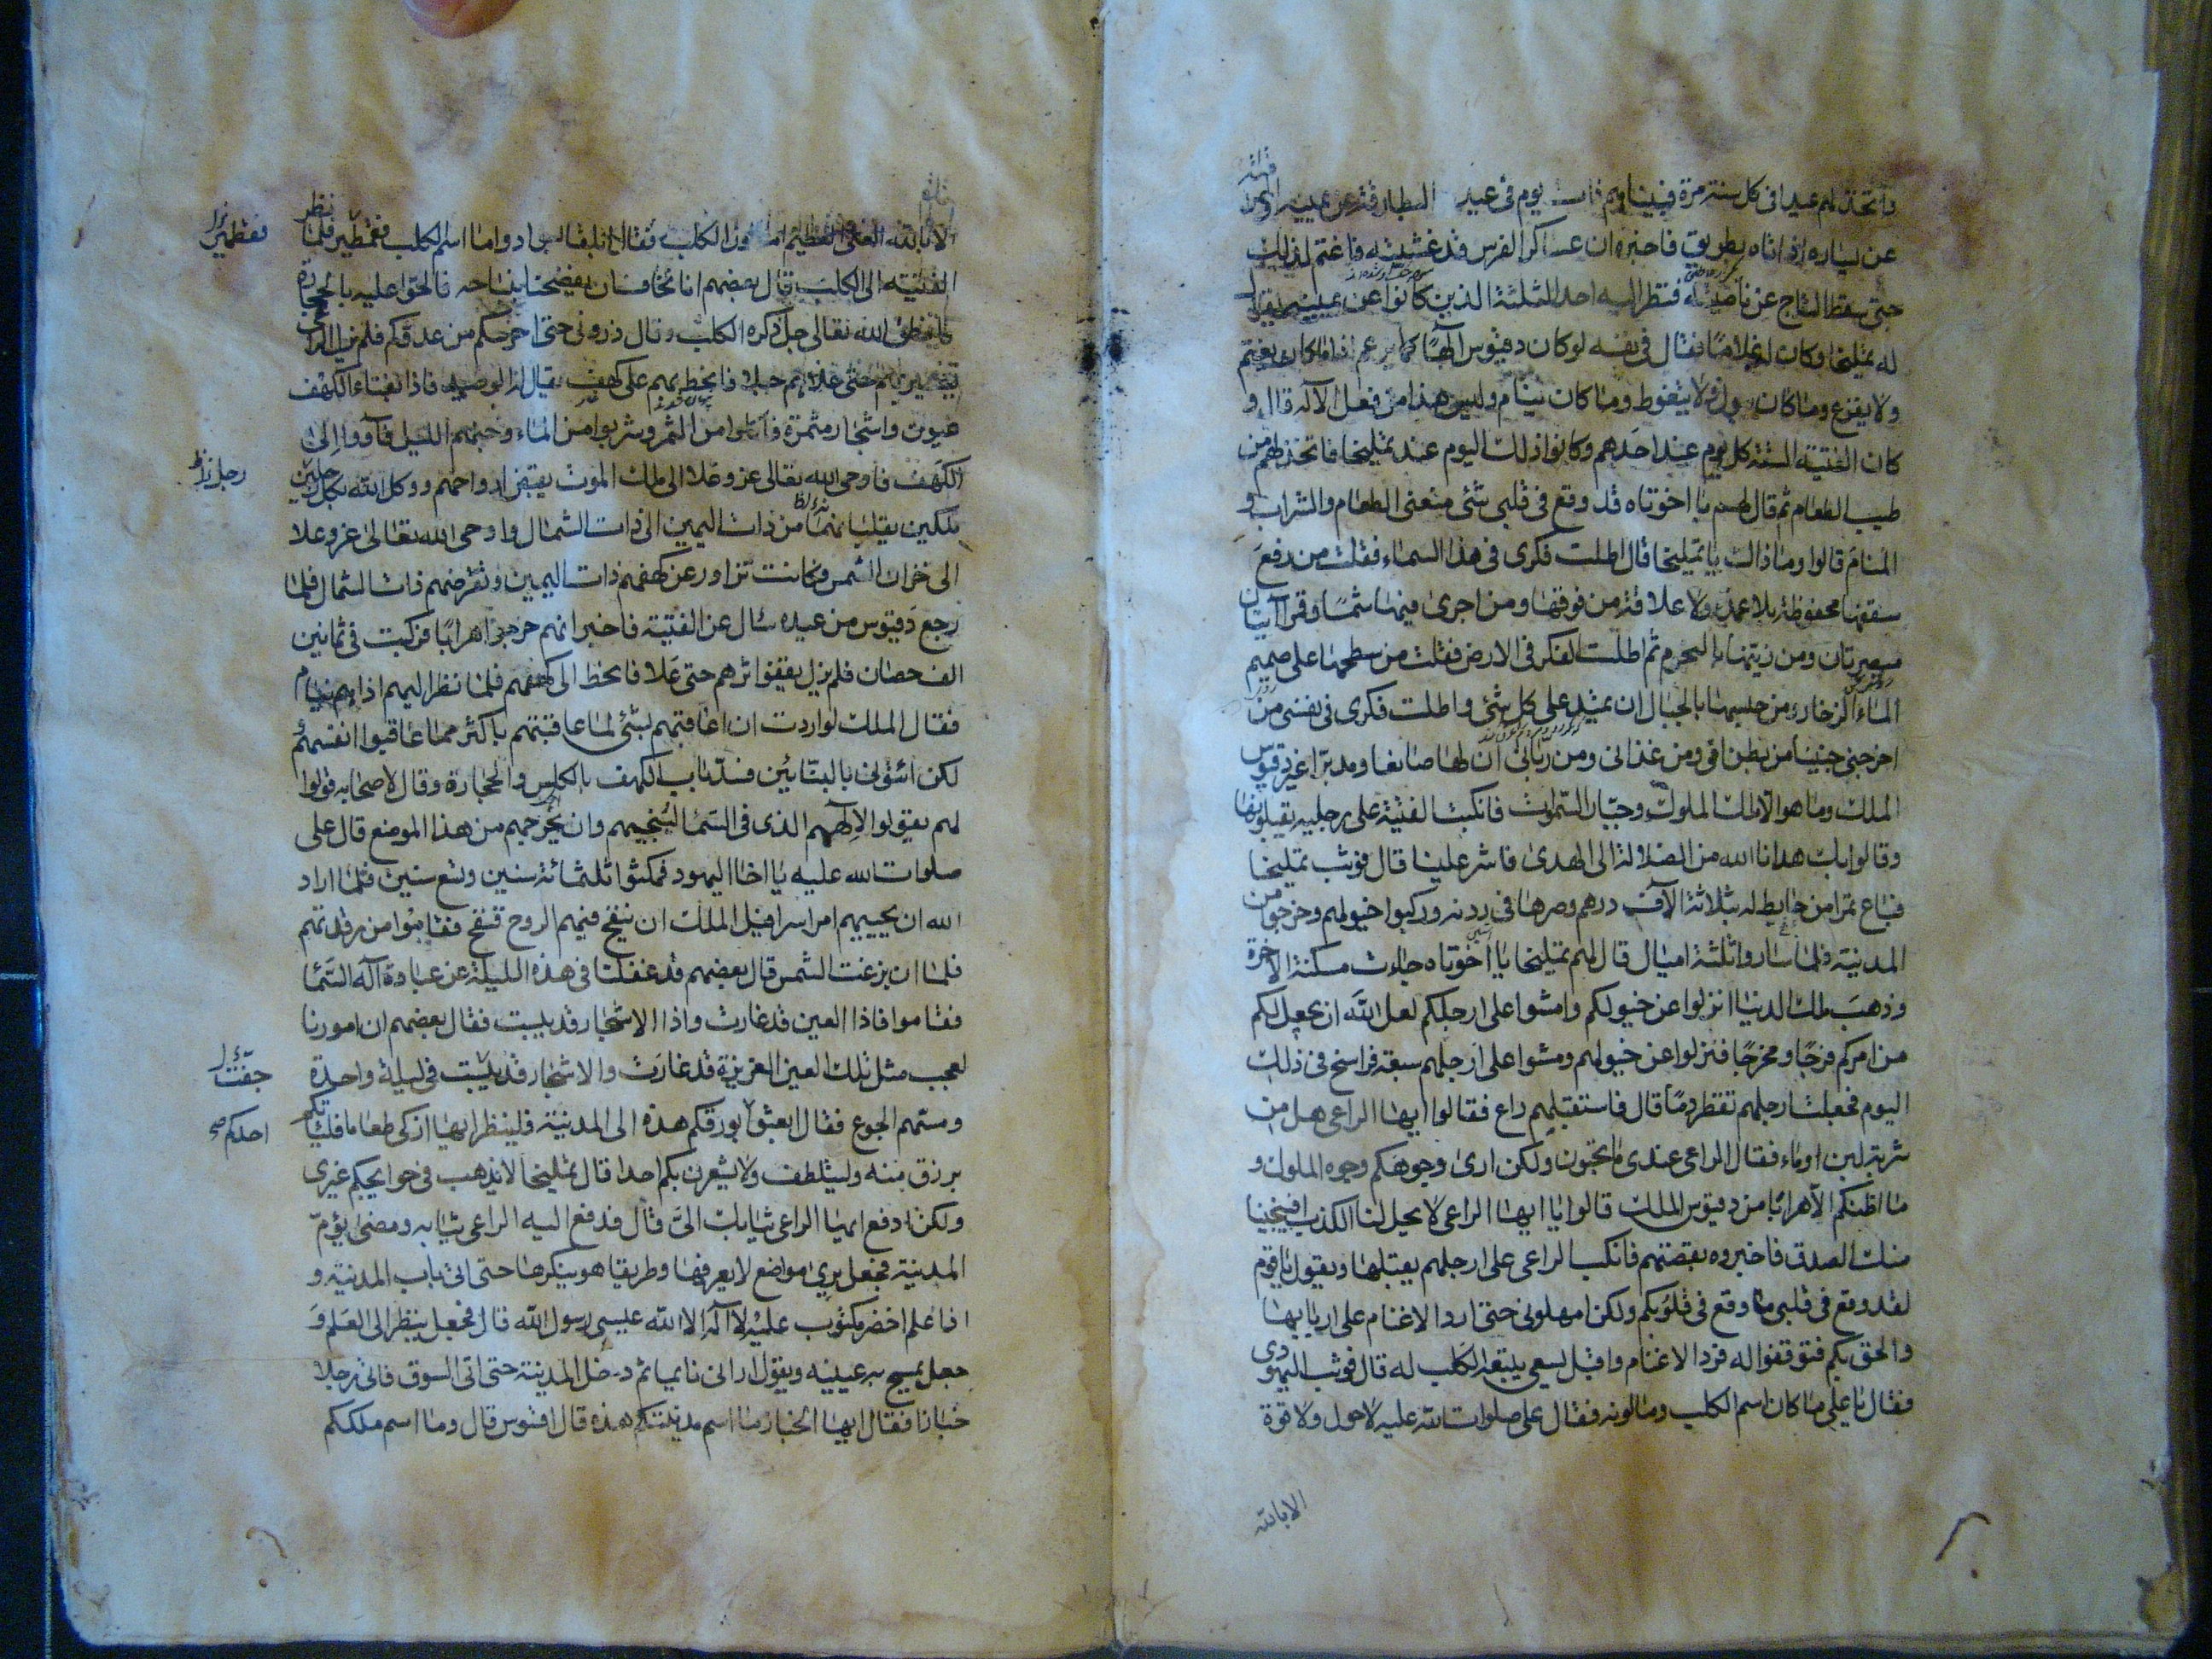 فاتخذ لهم عيدا فى كل سنة مرة فبيناهم ذات يوم فى عيد البطارقة عن يمينه
عن يساره اذ اتاه بطريق فاخبره ان عساكر الفرس قد غشيته فاغتم لذلك
حتى سقط التاج عن ناصيته فنظر اليه احد الثلثة الذين كانوا عن يمينه يقال
له تمليخا وكان غلاما فقال فى نفسه لو كان دقيوس الها كما يزعم اذا ما كان يغتم
ولا يفزع وما كان يبول ولا يتغوط وما كان ينام وليس هذا من فعل الآله قال و
كان الفتية الستة كل يوم عند احدهم وكانوا ذلك اليوم عند تمليخا فاتخذ لهم من
طيب الطعام ثم قال لهم يا اخوتاه قد وقع فى قلبى شئ منعنى الطعام والشراب و
المنام قالوا وما ذاك يا تمليخا قال اطلت فكرى فى هذا السماء فقلت من رفع
سقفها محفوظة بلا عمد ولا علاقة من فوقها ومن اجرى فيها شمسا وقمرا آيتان
مبصرتان ومن زينها بالنجوم ثم اطلت الفكر فى الارض فقلت من سطحها على صميم
الماء الزخار ومن حبسها بالجبال ان تميد على كل شئ واطلت فكرى فى نفسى من
اخرجنى جنينا من بطن امى ومن غذانى ومن ربانى ان لها صانعا ومدبرا غير دقيوس
الملك وما هو الا ملك الملوك وجبار السموات فانكبت الفتية على رجليه يقبلونها
وقالوا بك هدانا الله من الضلالة الى الهدى فاشر علينا قال فوثب تمليخا
فباع تمرا من حايط له بثلاثة الآف درهم وصرها فى ردنه وركبوا خيولهم وخرجوا من
المدينة فلما ساروا ثلثة اميال قال لهم تمليخا يا اخوتاه جاءت مسكنة الآخرة
وذهب ملك الدنيا انزلوا عن خيولكم وامشوا على ارجلكم لعل الله ان يجعل لكم
من امركم فرجا ومخرجا فنزلوا عن خيولهم ومشوا على ارجلهم سبعة فراسخ فى ذلك
اليوم فجعلت ارجلهم تقطر دما قال فاستقبلهم راع فقالوا ايها الراعى هل من
شربة لبن او ماء فقال الراعى عندى ما تحبون ولكن ارى وجوهكم وجوه الملوك و
ما اظنكم الا هرابا من دقيوس الملك قالوا يا ايها الراعى لا يحل لنا الكذب افينجينا
منك الصدق فاخبروه بقصتهم فانكب الراعى على ارجلهم يقبلها ويقول يا قوم
لقد وقع فى قلبى ما وقع فى قلوبكم ولكن امهلونى حتى ارد الاغنام على اربابها
والحق بكم فتوقفوا له فرد الاغنام واقبل يسعى يتبعه الكلب له قال فوثب اليهودى
فقال يا على ما كان اسم الكلب وما لونه فقال على صلوات الله عليه لا حول ولا قوة
الا بالله
الا بالله العلى العظيم اما لون الكلب فقال ابلقا بسواد واما اسم الكلب فقمطير فلما نظر
الفتية الى الكلب قال بعضهم انا نخاف ان يفضحنا بنباحه فالحوا عليه بالحجارة
فانطق الله تعالى جل ذكره الكلب وقال ذرونى حتى احرسكم من عدوكم فلم يزل الراعى
يسير بهم حتى علاهم جبلا فانحط بهم على كهف يقال له الوصيد فاذا بفناء الكهف
عيون واشجار مثمرة فاكلوا من الثمر وشربوا من الماء وجنهم الليل فآووا الى
الكهف فاوحى الله تعالى عز وعلا الى ملك الموت يقبض ارواحهم ووكل الله بكل رجلين
ملكين يقلبانهما من ذات اليمين الى ذات الشمال واوحى الله تعالى عز وعلا
الى خزان الشمس فكانت تزاور عن كهفهم ذات اليمين وتقرضهم ذات الشمال فلما
رجع دقيوس من عيده سال عن الفتية فاخبر انهم خرجوا هرابا فركب فى ثمانين
الف حصان فلم يزل يقفوا اثرهم حتى علا فانحط الى كهفهم فلما نظر اليهم اذا هم نيام
فقال الملك لو اردت ان اعاقبهم بشئ لما عاقبتهم باكثر مما عاقبوا انفسهم
لكن ائتونى بالبنائين فسد باب الكهف بالكلس والحجارة وقال لاصحابه قولوا
لهم يقولوا لإلههم الذى فى السماء لينجيهم وان يخرجهم من هذا الموضع قال على
صلوات الله عليه يا اخا اليهود فمكثوا ثلثمائة سنين وتسع سنين فلما اراد
الله ان يحييهم امر اسرافيل الملك ان ينفخ فيهم الروح فنفخ فقاموا من رقدتهم
فلما ان بزغت الشمس قال بعضهم قد غفلنا فى هذه الليلة عن عبادة آله السماء
فقاموا فاذا العين قد غارت واذا الاشجار قد يبست فقال بعضهم ان امورنا
لعجب مثل تلك العين الغزيرة قد غارت والاشجار قد يبست فى ليلة واحدة
ومسهم الجوع فقال ابعثوا بورقكم هذه الى المدينة فلينظر ايها ازكى طعاما فلياتكم
برزق منه وليتلطف ولا يشعرن بكم احدا قال تمليخا لا يذهب فى حوايجكم غيرى
ولكن ادفع ايها الراعى ثيابك الى قال فدفع اليه الراعى ثيابه ومضى يؤم
المدينة فجعل يرى مواضع لا يعرفها وطريقا هو ينكرها حتى اتى باب المدينة و
اذا علم اخضر مكتوب عليه لا آله الا الله عيسى رسول الله قال فجعل ينظر الى العلم و
جعل يمسح به عينيه ويقول ارانى نايما ثم دخل المدينة حتى اتى السوق فاتى رجلا
خبازا فقال ايها الخباز ما اسم مدينتكم هذه قال افسوس قال وما اسم ملككم